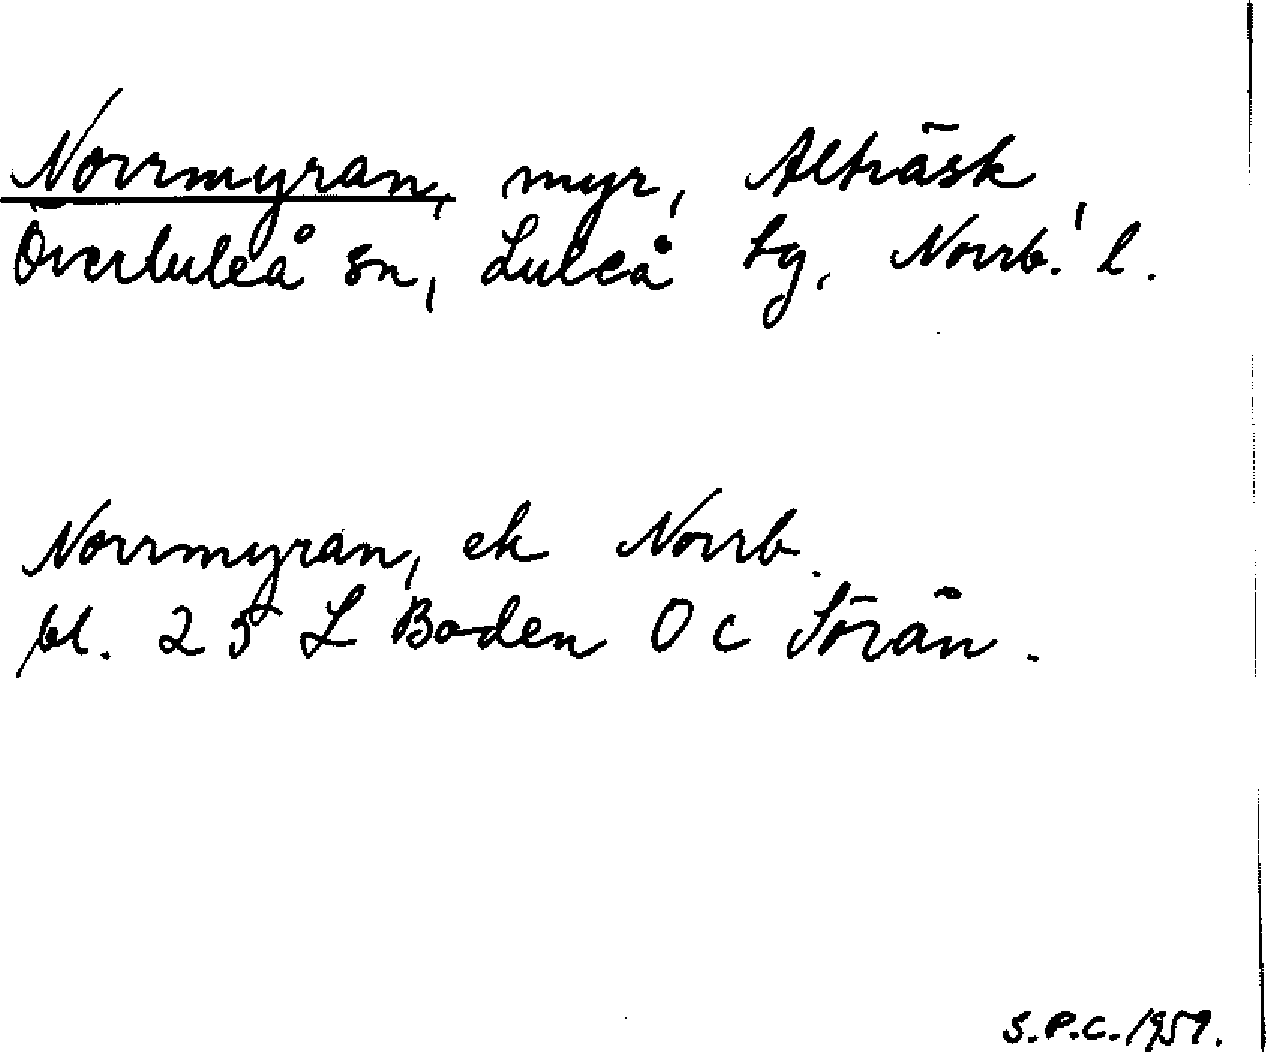 Norrmyran, myr, Alträsk,
Överluleå sn, Luleå tg, Norrb. l.
Norrmyran, ek Norrb.
bl. 25 L Boden 0 c Sörån.
S.P.C. 1959.